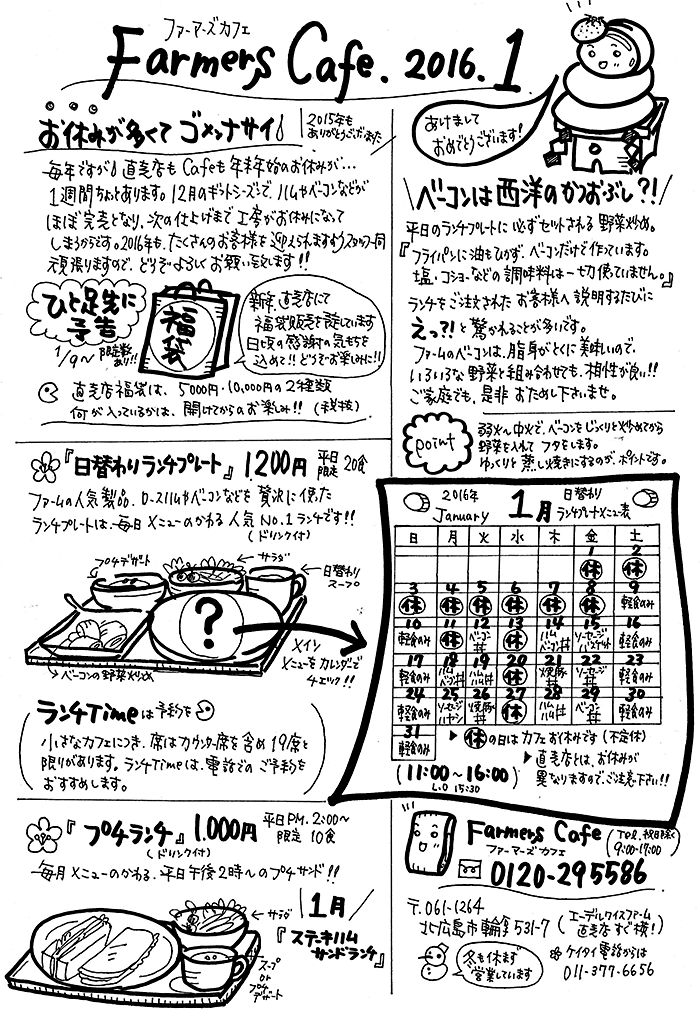 ファーマーズカフェ
Farmers Cafe. 2016.1
お休みが多くて ゴメンナサイ!
2015年も
ありがとうございました
毎年ですが! 直売店もCafeも年末年始のお休みが…
1週間ちょっとあります。12月のギフトシーズンで、ハムやベーコンなどが
ほぼ完売となり、次の仕上げまで工房がお休みになって
しまうからです。2016年も、たくさんのお客様を迎えられますようスタッフ一同
頑張りますので、どうぞよろしくお願い致します!!
ひと足先に
予告
1/9〜 限定数あり!!
福袋
新年、直売店にて
福袋販売を予定しています
日頃の感謝の気もちを
込めて!! どうぞお楽しみに!!
直売店福袋は、5000円・10,000円の2種類
何が入っているかは、開けてからのお楽しみ!! (税抜)
『日替わりランチプレート』 1,200円 平日限定20食
ファームの人気製品、ロースハムやベーコンなどを贅沢に使った
ランチプレートは、毎日メニューのかわる人気No.1ランチです!!
(ドリンク付)
プチデザート
サラダ
日替わり
スープ
?
メイン
メニューをカレンダーで
チェック!!
ベーコンの野菜炒め
ランチTimeは予約を
小さなカフェにつき、席はカウンター席を含め19席と
限りがあります。ランチTimeは、電話でのご予約を
おすすめします。
『プチランチ』 1,000円 平日P.M. 2:00〜
限定10食
(ドリンク付)
毎月メニューのかわる、平日午後2時〜のプチサンド!!
サラダ
1月
『ステーキハム
サンドランチ』
スープ
or
プチ
デザート
あけまして
おめでとうございます!
ベーコンは西洋のかつおぶし?!
平日のランチプレートに必ずセットされる野菜炒め。
『フライパンに油もひかず、ベーコンだけで作っています。
塩・コショーなどの調味料は一切使っていません。』
ランチをご注文されたお客様へ説明するたびに
えっ?!と驚かれることが多いです。
ファームのベーコンは、脂身がとくに美味しいので、
いろいろな野菜と組み合わせても、相性が良い!!
ご家庭でも、是非おためし下さいませ。
point
弱火〜中火で、ベーコンをじっくりと炒めてから
野菜を入れてフタをします。
ゆっくりと蒸し焼きにするのが、ポイントです。
2016年
January 1月 日替わり
ランチプレートメニュー表
日 月 火 水 木 金 土
1 2
休 休
3 4 5 6 7 8 9
休 休 休 休 休 休 軽食のみ
10 11 12 13 14 15 16
軽食のみ 休 ベーコン丼 休 ハムベーコン丼 ソーセージバスケット 軽食のみ
17 18 19 20 21 22 23
軽食のみ ハムベーコン丼 ハムハム丼 休 焼豚丼 ソーセージ丼 軽食のみ
24 25 26 27 28 29 30
軽食のみ ソーセージハヤシ 焼豚丼 休 ハムハム丼 ベーコン丼 軽食のみ
31
軽食のみ
休の日はカフェお休みです (不定休)
(11:00〜16:00)
L.O 15:30
直売店とは、お休みが
異なりますので、ご注意下さい!!
Farmers Cafe
ファーマーズ カフェ
(TEL. 祝日除く
9:00-17:00)
0120-295586
〒061-1264
北広島市輪厚531-7 (エーデルワイスファーム
直売店すぐ横!)
冬も休まず
営業しています
ケイタイ電話からは
011-377-6656